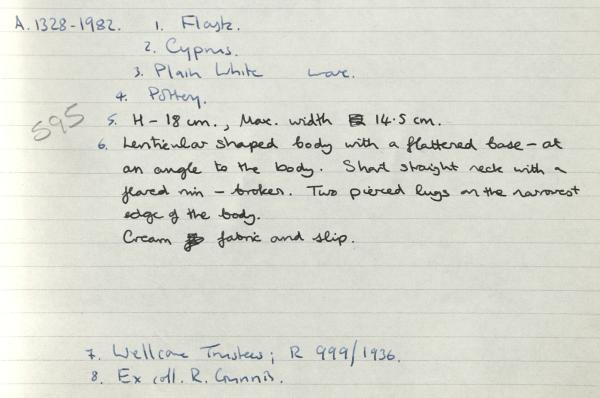 A. 1328-1982. 1. Flask.
2. Cyprus.
3. Plain White ware.
4. Pottery.
595
5. H - 18 cm., Max. width 14.5 cm.
6. Lenticular shaped body with a flattened base - at
an angle to the body. Short straight neck with a
flared rim - broken. Two pierced lugs on the narrowest
edge of the body.
Cream fabric and slip.
7. Wellcome Trustees; R 999/1936.
8. Ex coll. R. Gunnis.